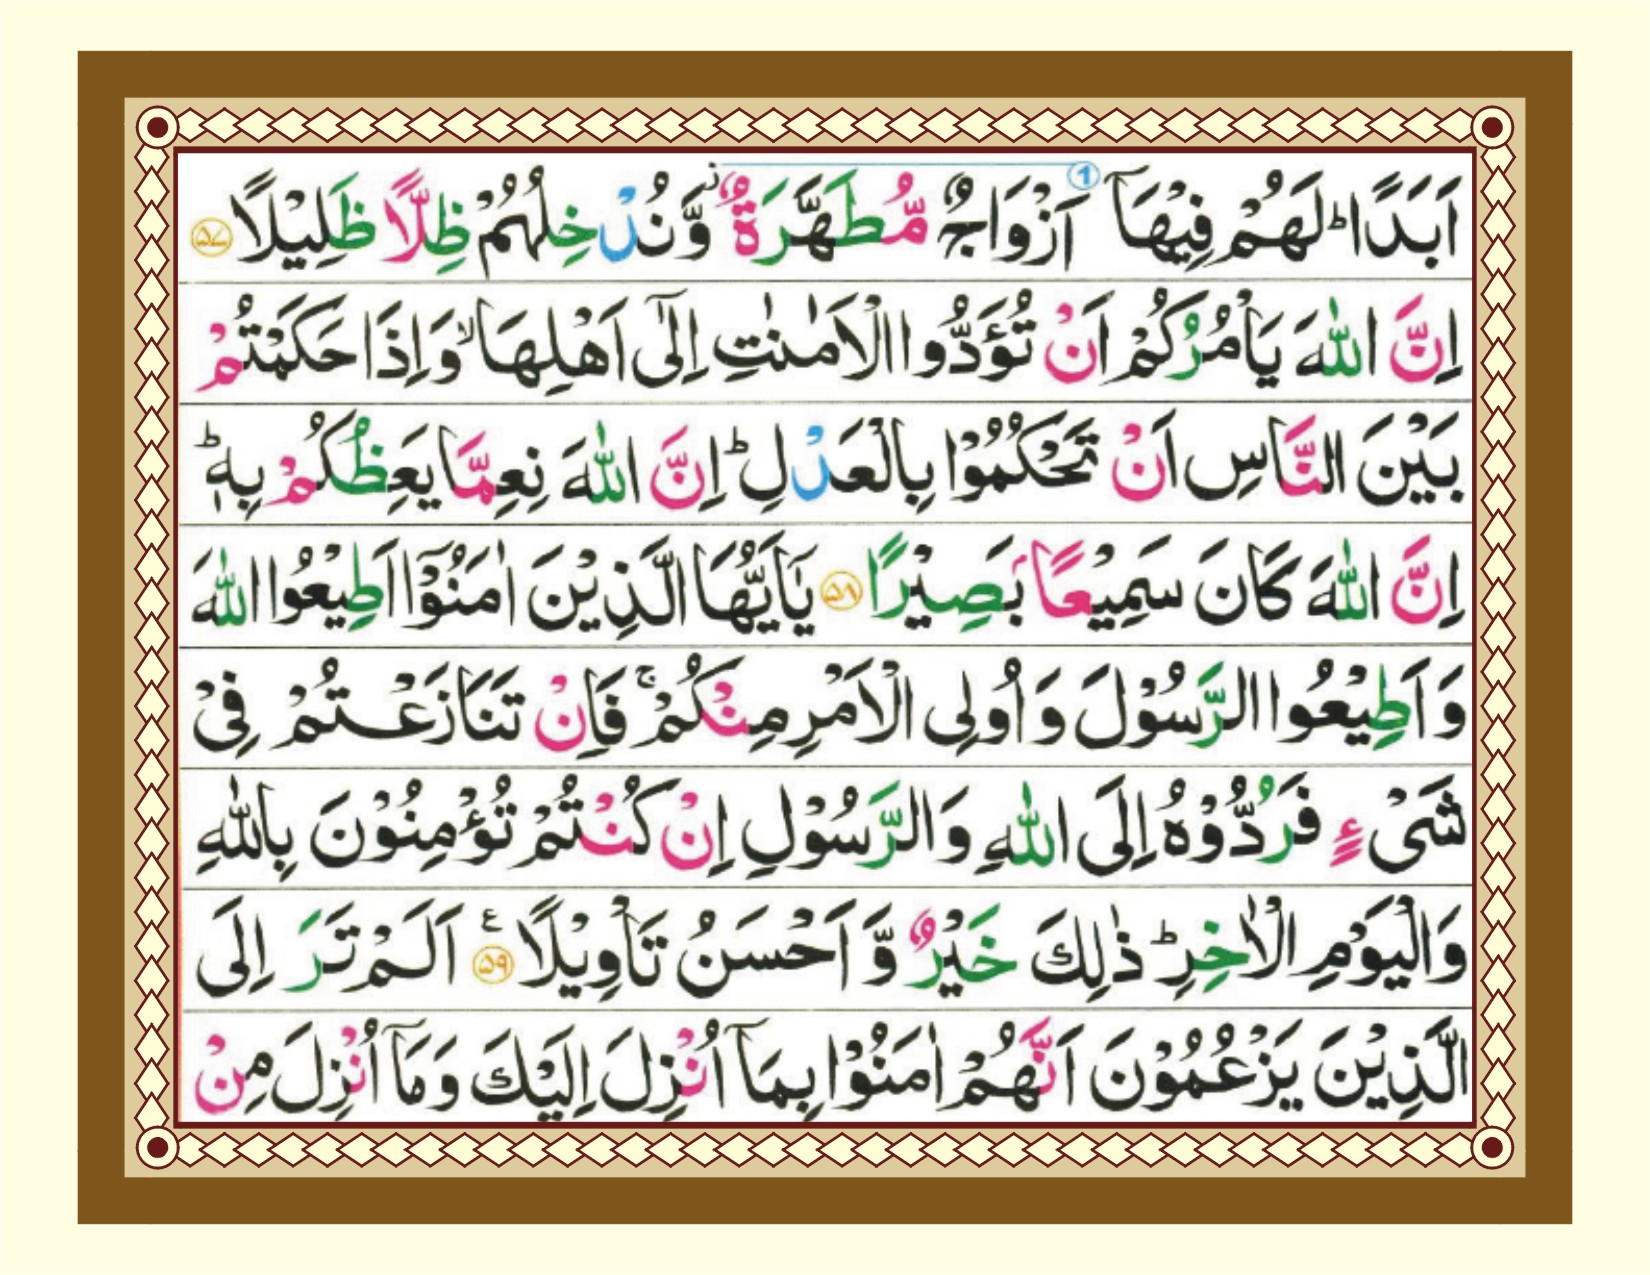 اَبَدًا ؕ لَهُمْ فِيْهَاۤ ① اَزْوَاجٌ مُّطَهَّرَةٌ ۫ وَّنُدْخِلُهُمْ ظِلًّا ظَلِيْلًا ۵۷
اِنَّ اللّٰهَ يَاْمُرُكُمْ اَنْ تُؤَدُّوا الْاَمٰنٰتِ اِلٰٓى اَهْلِهَا ۙ وَاِذَا حَكَمْتُمْ
بَيْنَ النَّاسِ اَنْ تَحْكُمُوْا بِالْعَدْلِ ؕ اِنَّ اللّٰهَ نِعِمَّا يَعِظُكُمْ بِهٖ ؕ
اِنَّ اللّٰهَ كَانَ سَمِيْعًۢا بَصِيْرًا ۵۸ يٰۤاَيُّهَا الَّذِيْنَ اٰمَنُوْۤا اَطِيْعُوا اللّٰهَ
وَاَطِيْعُوا الرَّسُوْلَ وَاُولِى الْاَمْرِ مِنْكُمْ ۚ فَاِنْ تَنَازَعْتُمْ فِىْ
شَىْءٍ فَرُدُّوْهُ اِلَى اللّٰهِ وَالرَّسُوْلِ اِنْ كُنْتُمْ تُؤْمِنُوْنَ بِاللّٰهِ
وَالْيَوْمِ الْاٰخِرِ ؕ ذٰلِكَ خَيْرٌ وَّاَحْسَنُ تَاْوِيْلًا ۵۹ ع اَلَمْ تَرَ اِلَى
الَّذِيْنَ يَزْعُمُوْنَ اَنَّهُمْ اٰمَنُوْا بِمَاۤ اُنْزِلَ اِلَيْكَ وَمَاۤ اُنْزِلَ مِنْ